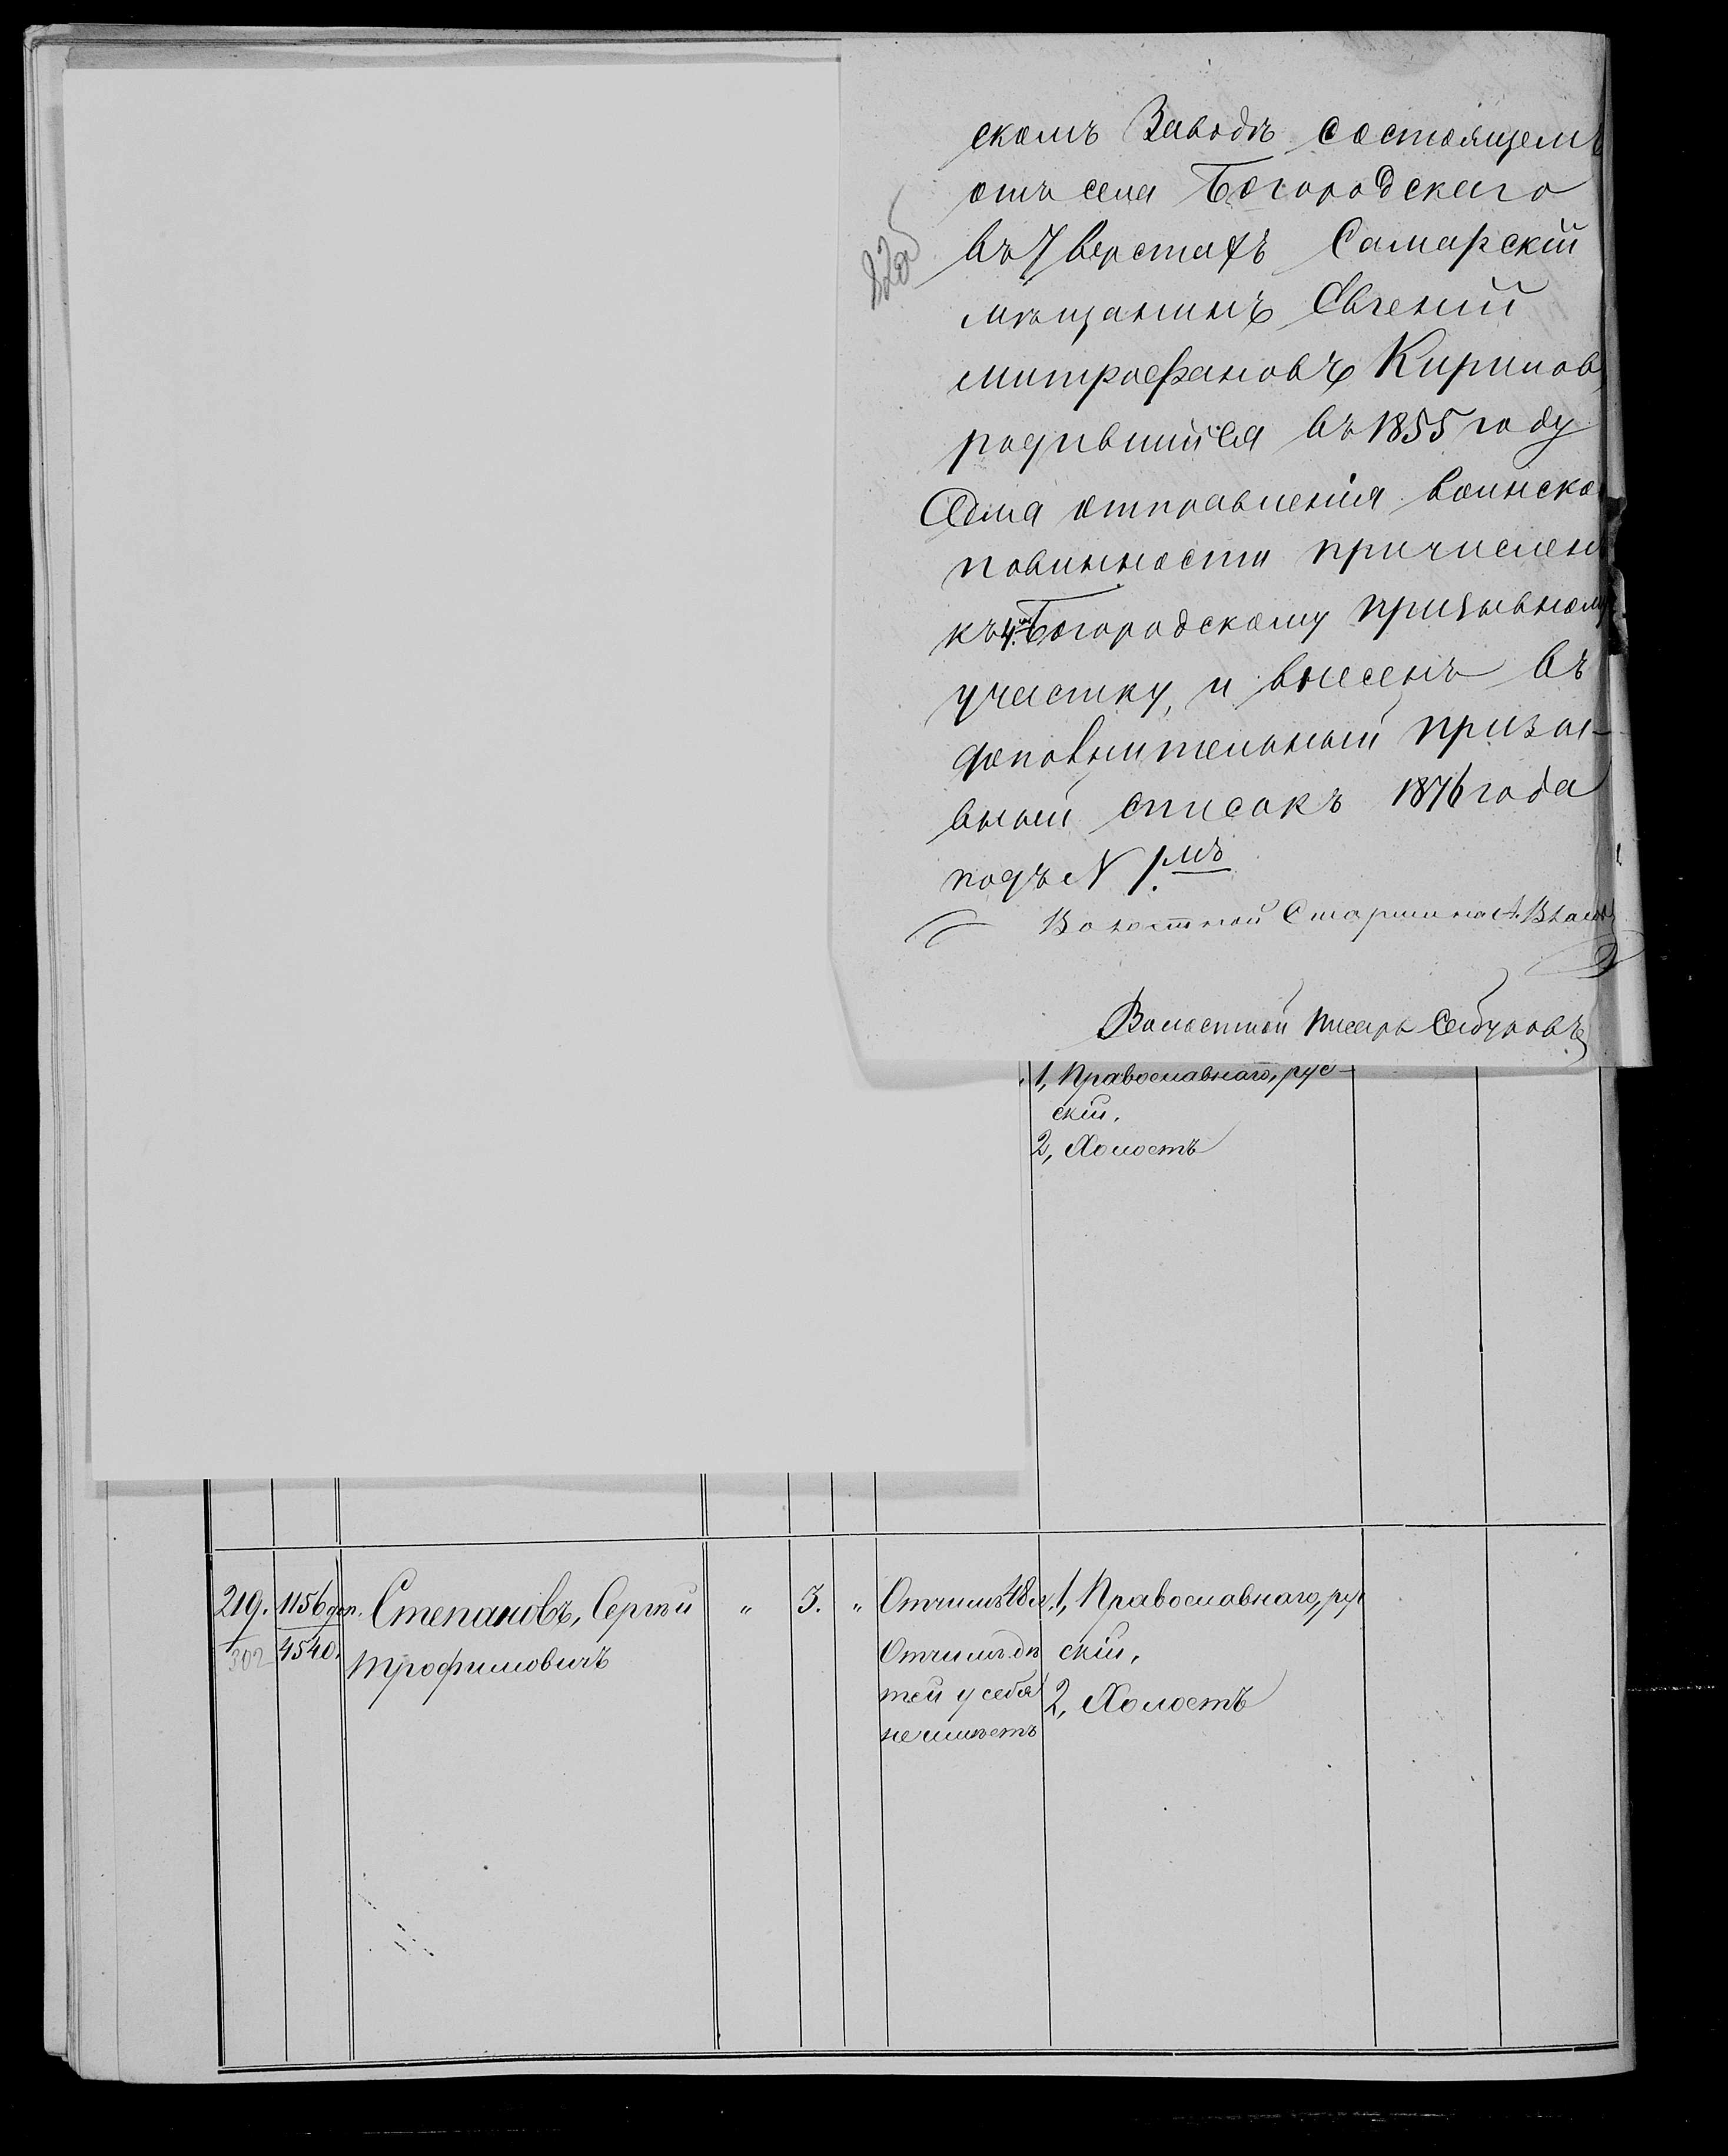 скомъ Заводѣ состоящемъ
отъ села Богородскаго
въ 7 верстахъ Самарскій
мѣщанинъ Евгеній
Митрофановъ Кириловъ
родившійся въ 1855 году
для отправленія воинской
повинности причисленъ
къ 4му Богородскому призывному
участку, и внесенъ въ
дополнительный призы-
вный списокъ 1876 года
подъ N 1.мъ
Волостной Старшина А.
Волостной писарь
1, Православнаго, рус-
скій.
2, Холостъ
219. 1156 доп. Степановъ, Сергѣй " 3. " Отчимъ 48 л. 1, Православнаго, рус
302 4540. Трофимовичъ Отчимъ дѣ скій.
тей у себя 2, Холостъ
не имѣетъ